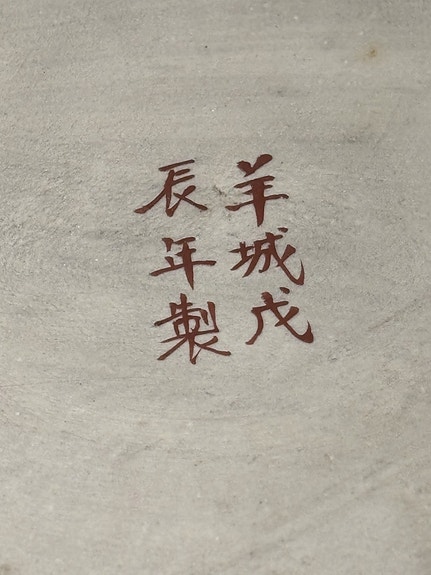 羊城戊
辰年製